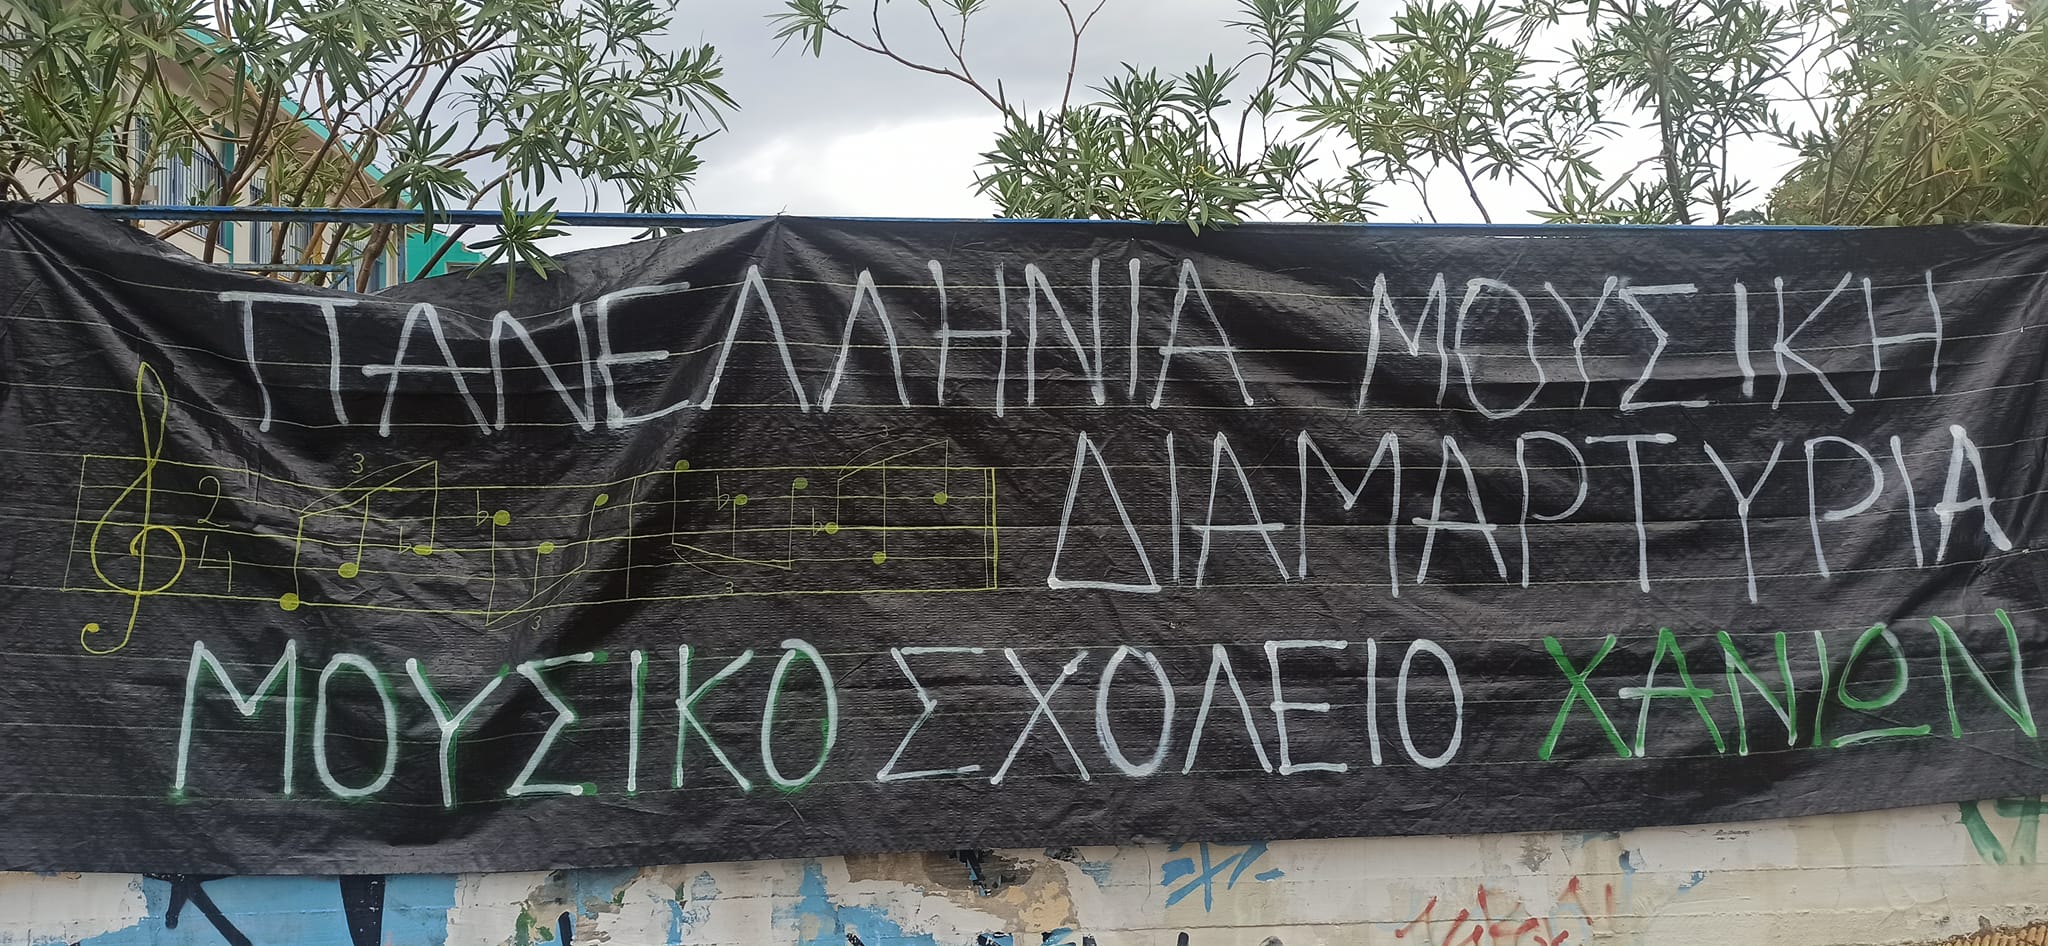 ΠΑΝΕΛΛΗΝΙΑ ΜΟΥΣΙΚΗ
ΔΙΑΜΑΡΤΥΡΙΑ
ΜΟΥΣΙΚΟ ΣΧΟΛΕΙΟ ΧΑΝΙΩΝ